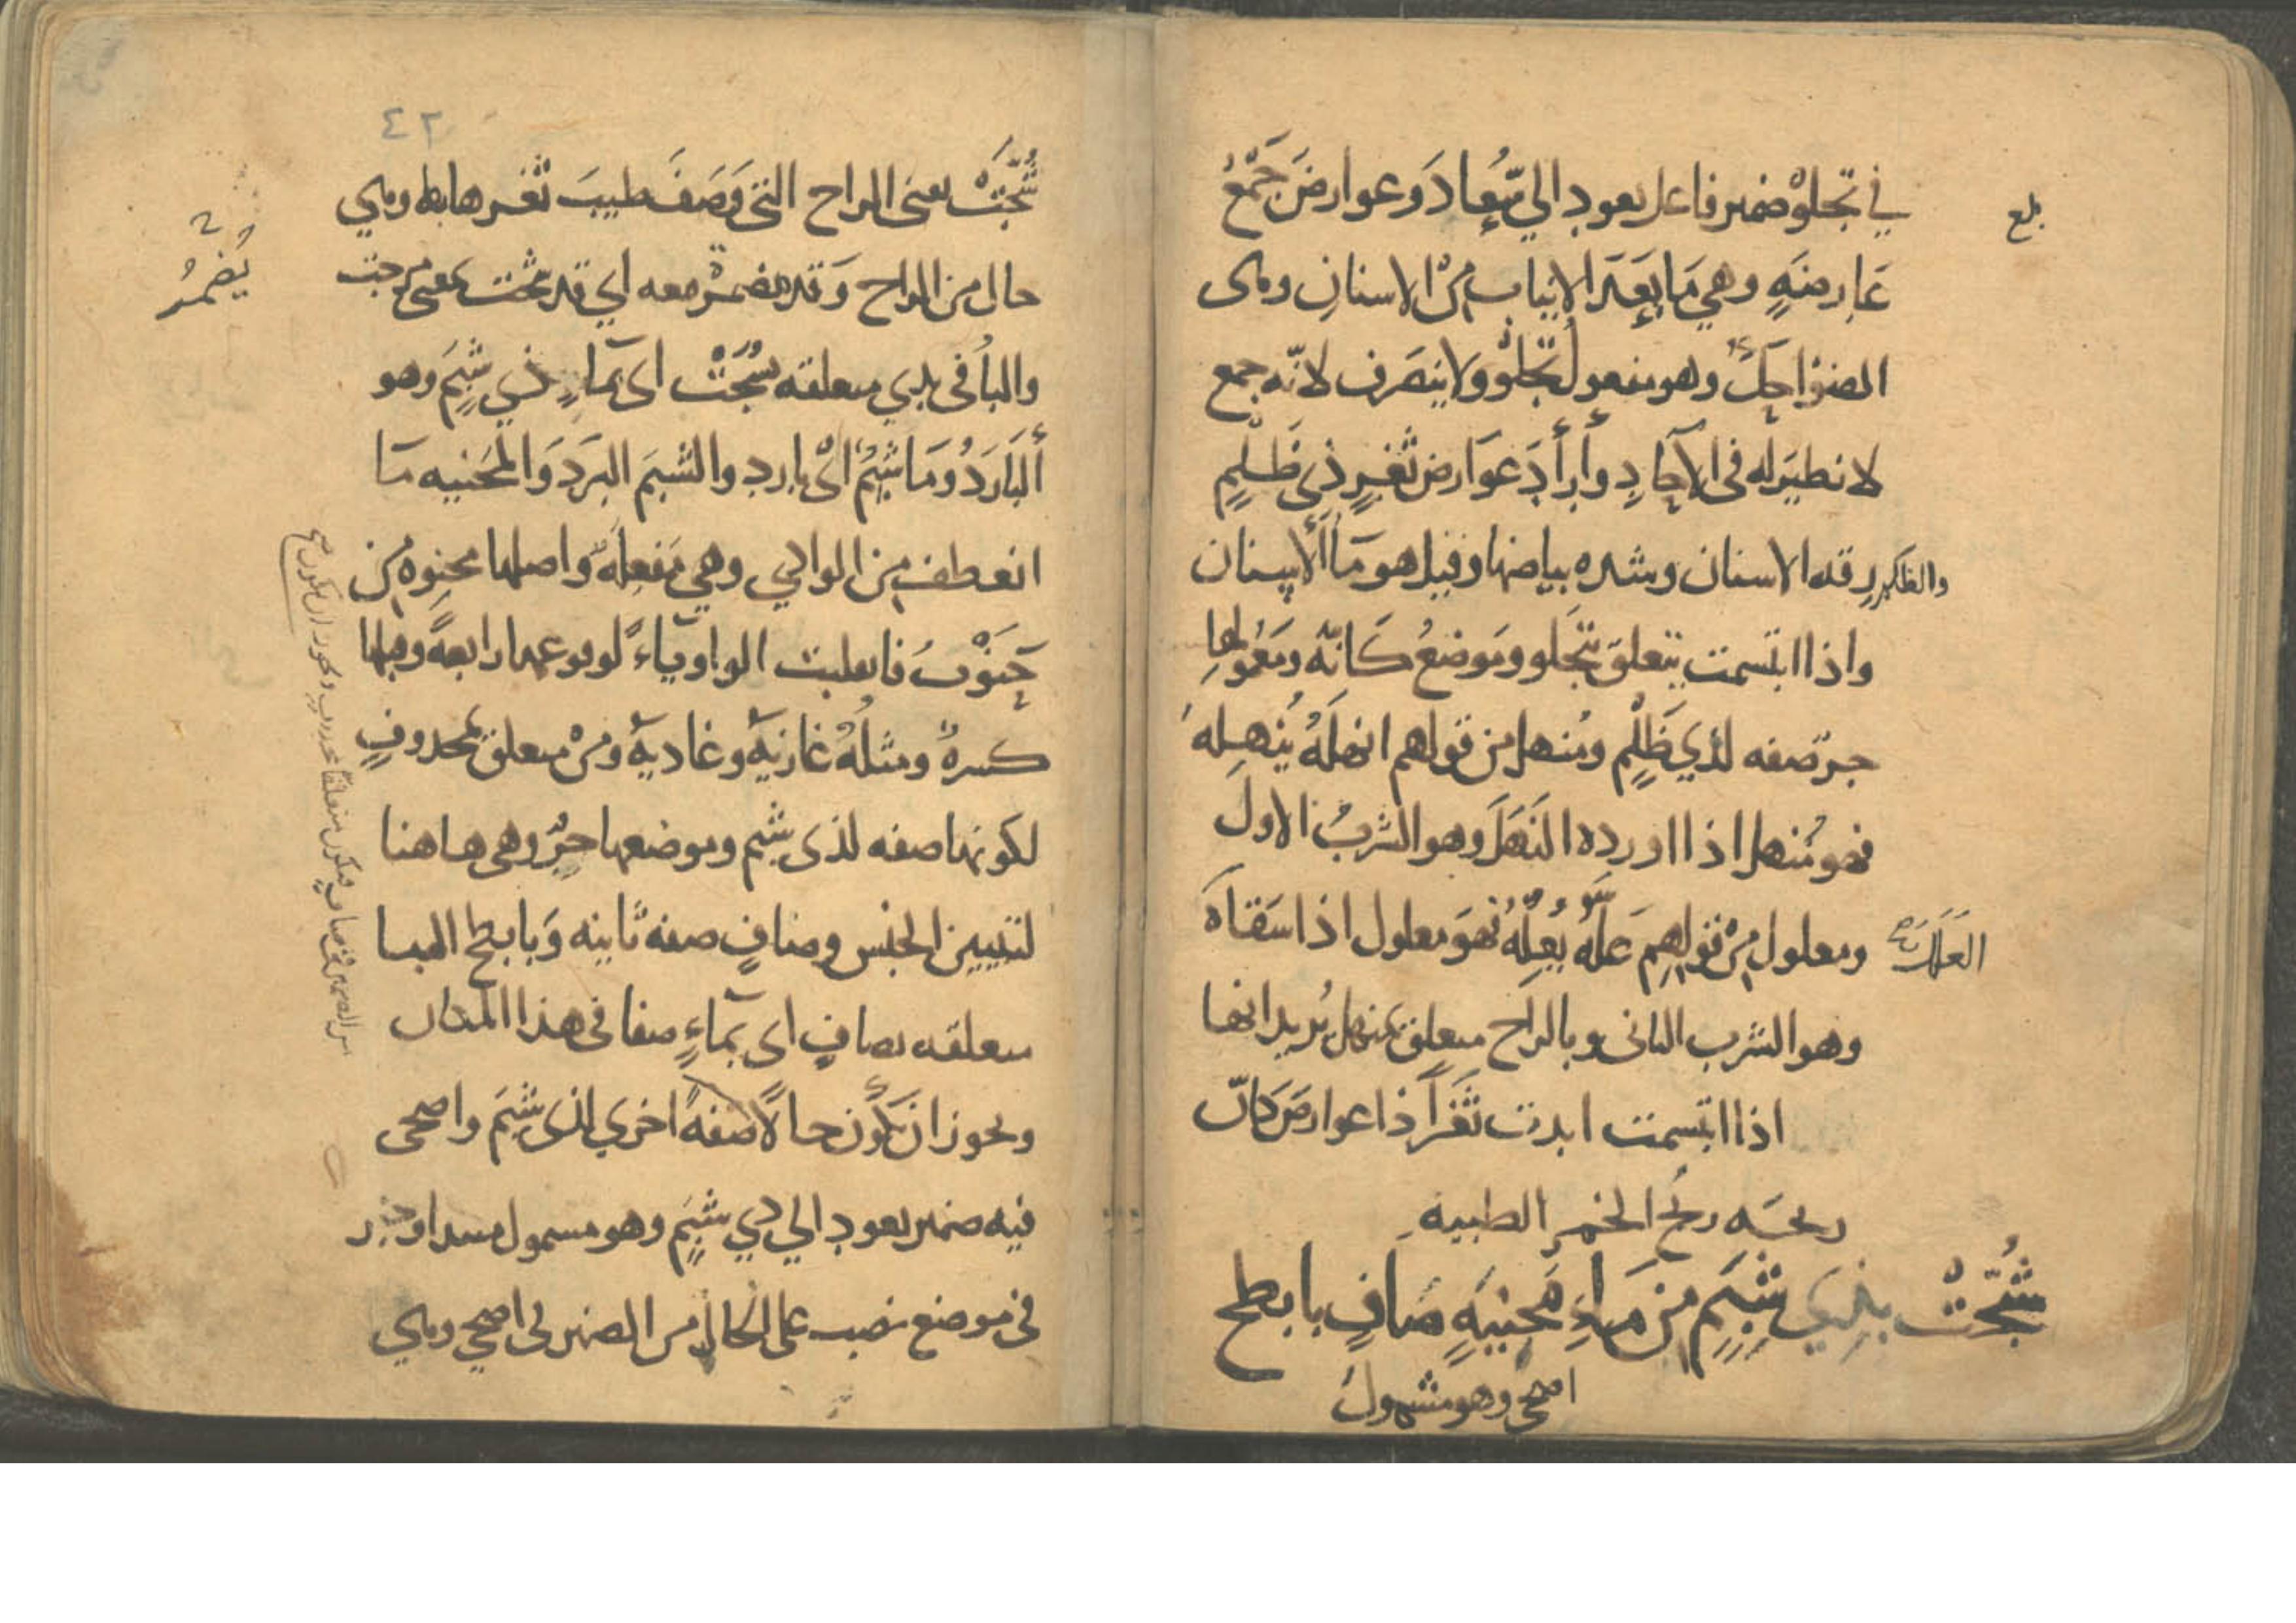 في تجلوْ ضمير فاعل يعود الي سُعاد وعوارضَ جَمْعُ
بلغ
عَارضَةٍ وهي مَا بَعَدَ الانياب مِنْ الاسنانِ وهى
الضوَاحِكُ وهو مفعول تجْلوْ ولا ينصَرف لانّه جمع
لا نظيرَ له فى الآحَادِ وأرأدَ عَوَارض ثغرٍ ذِي ظَلْمٍ
والظلم رقه الاسنان وشده بياضها وقيل هو مَاأُ الاسنان
واذا ابتسمت يتعلق بتَجلو ومَوضعُ كَانّه ومَعْمُولهَا
جرّ صفه لذي ظَلْمٍ ومُنهل من قولهم انهلَهُ يُنهِله
فهو مُنهل اذا اورده النَهَلَ وهو الشربُ الاول
ومعلول مِنْ قولهِم عَلَّهُ يُعِلّهُ فهوَ معلول اذا سَقاهَ
العَلَلَ
وهو الشرب الثانى وبالراح متعلق بمنهل يُريد انها
اذا ابتسمت ابدت ثَغْراً ذا عوارضَ كانّ
ريحَه ريحُ الخمرِ الطيبه
شُجّتْ بذِي شَبَمٍ مِن مَاءِ مَحْنِيَةٍ صَافٍ بابطح
اضحى وهو مشمولُ
٤٢
شُجّتْ يعنى الراح التى وَصَفَ طيبَ ثغرها بها وهي
حال من الراح وَقد مضمرْة معه اي قد شجت بمعنى مزجت
يُضمرُ
والبأُ فى بذي متعلقه بشُجّتْ اى بمَاءٍ ذي شبِمَ وهو
ألبَارَدُ ومَا شَبِمُ اىْ بارد والشبَمَ البرَدَ وَالمَحَنيه مَا
انعطف من الوادي وهي مَفعِلَهُ واصلها مَحنِوه مِن
حَنَوْتُ فانقلبت الواو يآءً لوقوعها رابعهً وقبلها
كسرهُ ومثلُهُ غازيَهٌ وغاديهٌ ومنْ متعلق بمحذوفٍ
لكونها صفه لذى شبم وموضعها جرّ وهى هاهنا
لتبيين الجنس وصَافٍ صفه ثانيه وَبابطح البا
متعلقه بصافٍ اى بمَآءٍ صفا فى هذا المكان
ويحوز ان يكُون حالًا صفهً اخري لذى شبِمَ واضحى
فيه ضمير يعود الي ذي شبِمَ وهو مشمول مبتدا وخبر
فى موضع نصب على الحال من الضمير فى اضحي وهي